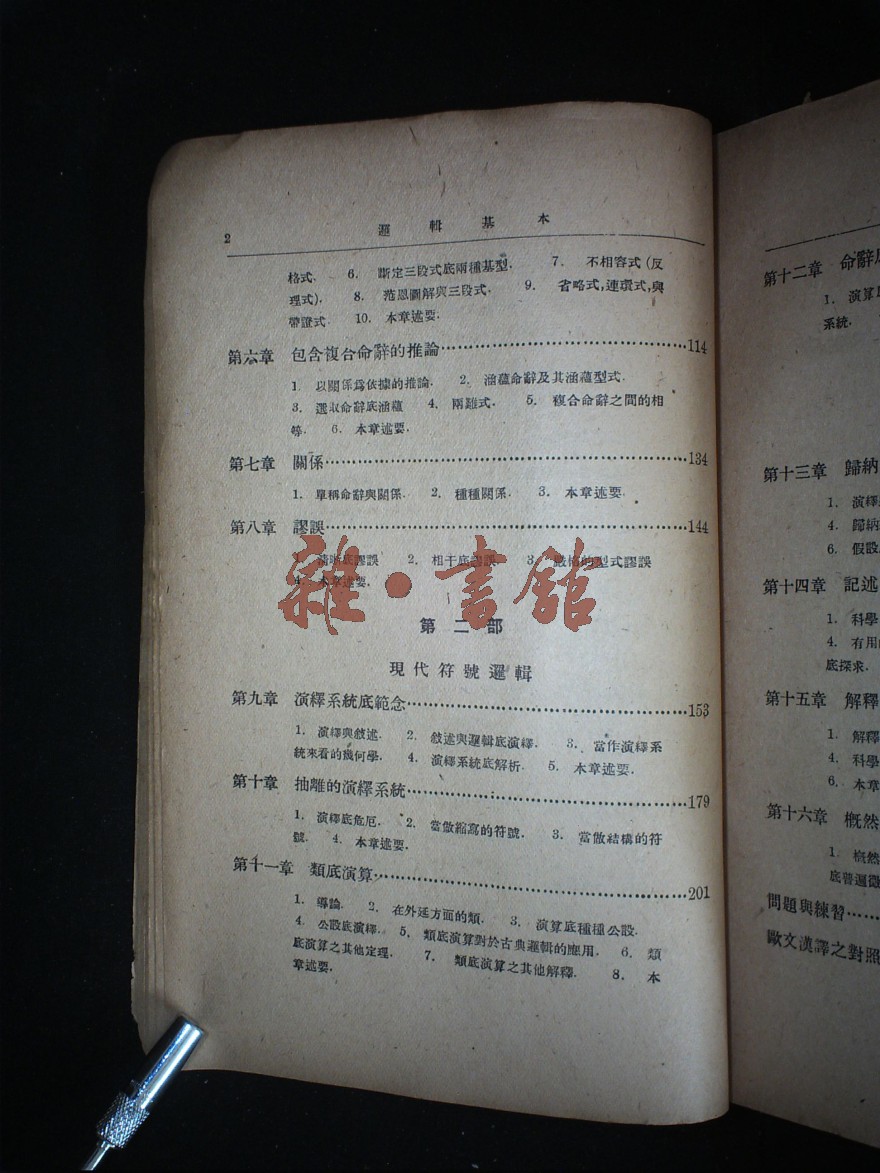 2 邏輯基本
格式. 6. 斷定三段式底兩種基型. 7. 不相容式(反
理式). 8. 范恩圖解與三段式. 9. 省略式,連環式,與
帶證式. 10. 本章述要.
第六章 包含複合命辭的推論……114
1. 以關係爲依據的推論. 2. 涵蘊命辭及其涵蘊型式.
3. 選取命辭底涵蘊 4. 兩難式. 5. 複合命辭之間的相
等. 6. 本章述要.
第七章 關係……134
1. 單稱命辭與關係. 2. 種種關係. 3. 本章述要.
第八章 謬誤……144
1. 清晰底謬誤 2. 相干底謬誤. 3. 嚴格的型式謬誤
4. 本章述要.
雜·書館
第二部
現代符號邏輯
第九章 演繹系統底範念……153
1. 演繹與敍述. 2. 敍述與邏輯底演繹. 3. 當作演繹系
統來看的幾何學. 4. 演繹系統底解析. 5. 本章述要.
第十章 抽離的演繹系統……179
1. 演繹底危厄. 2. 當做縮寫的符號. 3. 當做結構的符
號. 4. 本章述要.
第十一章 類底演算……201
1. 導論. 2. 在外延方面的類. 3. 演算底種種公設.
4. 公設底演繹. 5. 類底演算對於古典邏輯的應用. 6. 類
底演算之其他定理. 7. 類底演算之其他解釋. 8. 本
章述要.
第十二章 命辭底
1. 演算底
系統.
第十三章 歸納
1. 演繹
4. 歸納
6. 假設
第十四章 記述
1. 科學
4. 有用
底探求.
第十五章 解釋
1. 解釋
4. 科學
6. 本章
第十六章 概然
1. 概然
底普遍徵
問題與練習……
歐文漢譯之對照